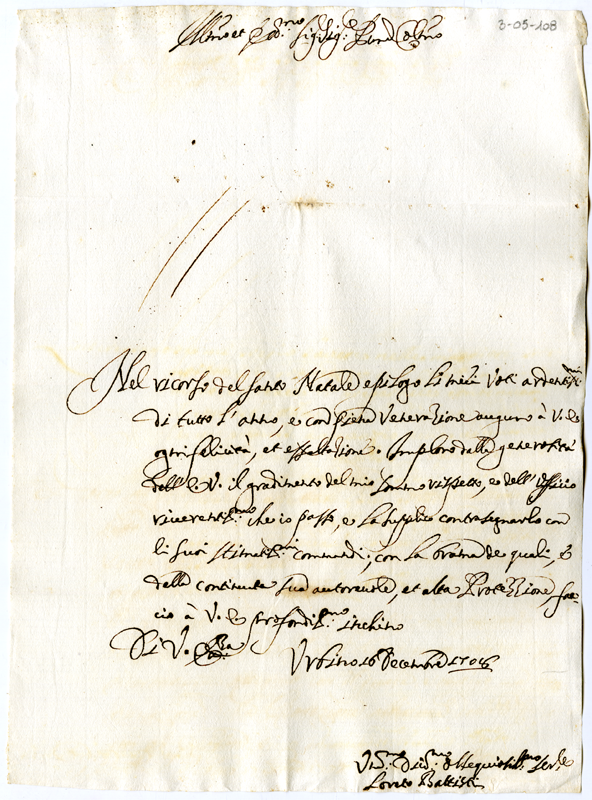 3-05-108
Ill.mo et Sig.
Nel ricorso del Santo Natale epilogo li miei voti ardentis.mi
di tutto l'anno, e con piena Venerazione auguro à V. E.
ogni felicità, et essaltazione. Imploro dalla generosità
dell'E.V. il gradimento del mio sommo rispetto, e dell'Officio
riverentis.mo che io passo, e la supplico contrasegnarlo con
li suoi stimatis.mi comandi; con la brama de quali, e
della continuata sua autorevole, et alta Protezzione, fac-
cio à V. E. profondis.mo inchino
Di V. E.
Urbino 16 Decembre
Um.mo ossequiosis.mo Ser.e
Loreto Battisti